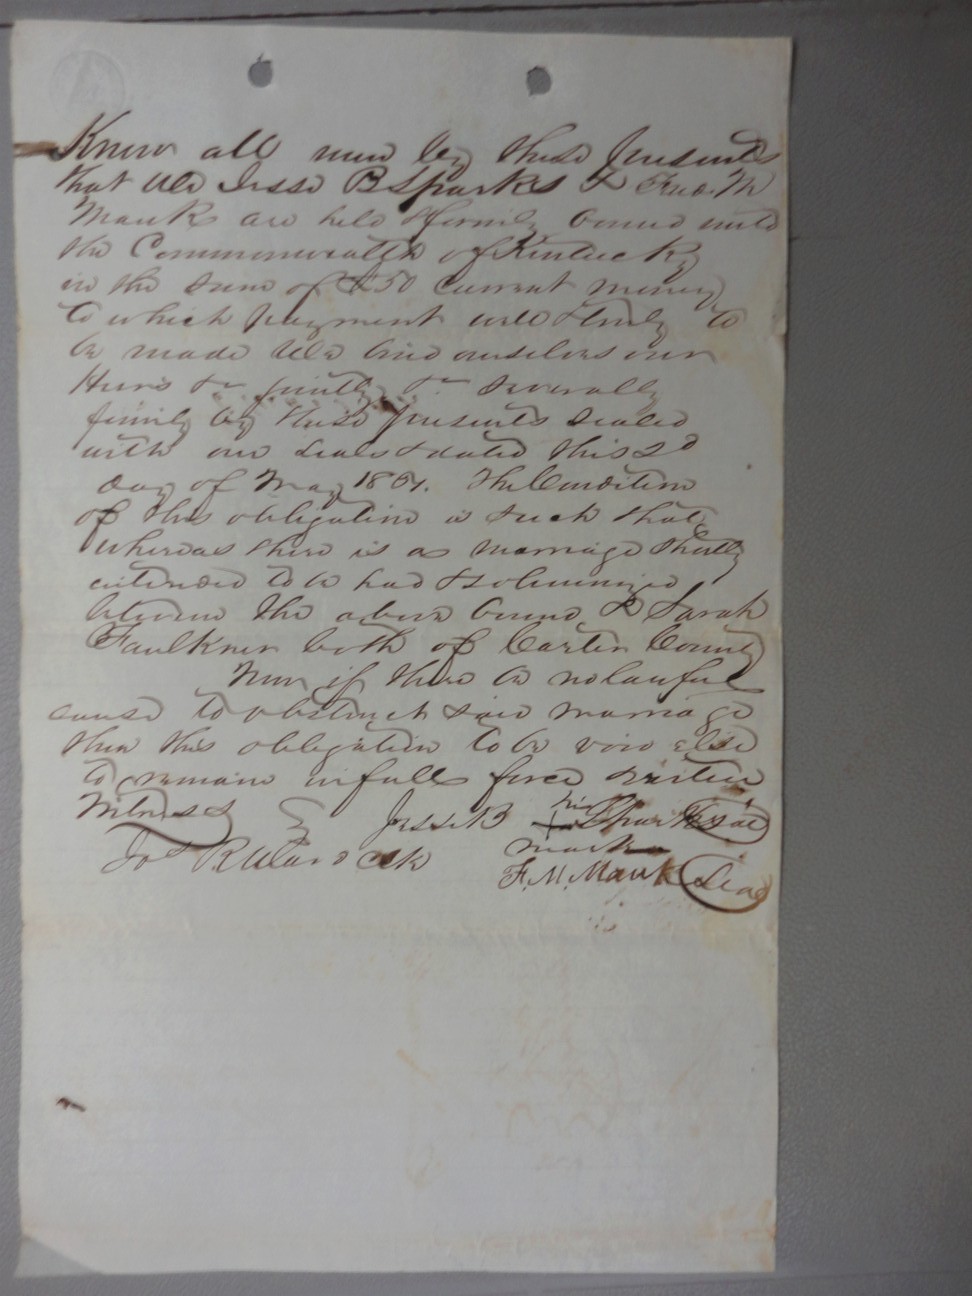 Know all men by these presents
that We Jesse B Sparks & Fred. M
Mauk are held & firmly bound unto
the Commonwealth of Kentucky
in the sum of £50 current money
to which payment well & truly to
be made We bind ourselves our
Heirs &c jointly &c severally
firmly by these presents sealed
with our seals & dated this 2d
day of May 1861. The Condition
of this obligation is such that
whereas there is a marriage shortly
intended to be had & solemnized
between the above bound & Sarah
Faulkner both of Carter County
Now if there be no lawful
cause to obstruct said marriage
then this obligation to be void else
to remain in full force & virtue
Witness Jesse B his Sparks Seal
Jos R Ward mark
F. M. Mauk Seal